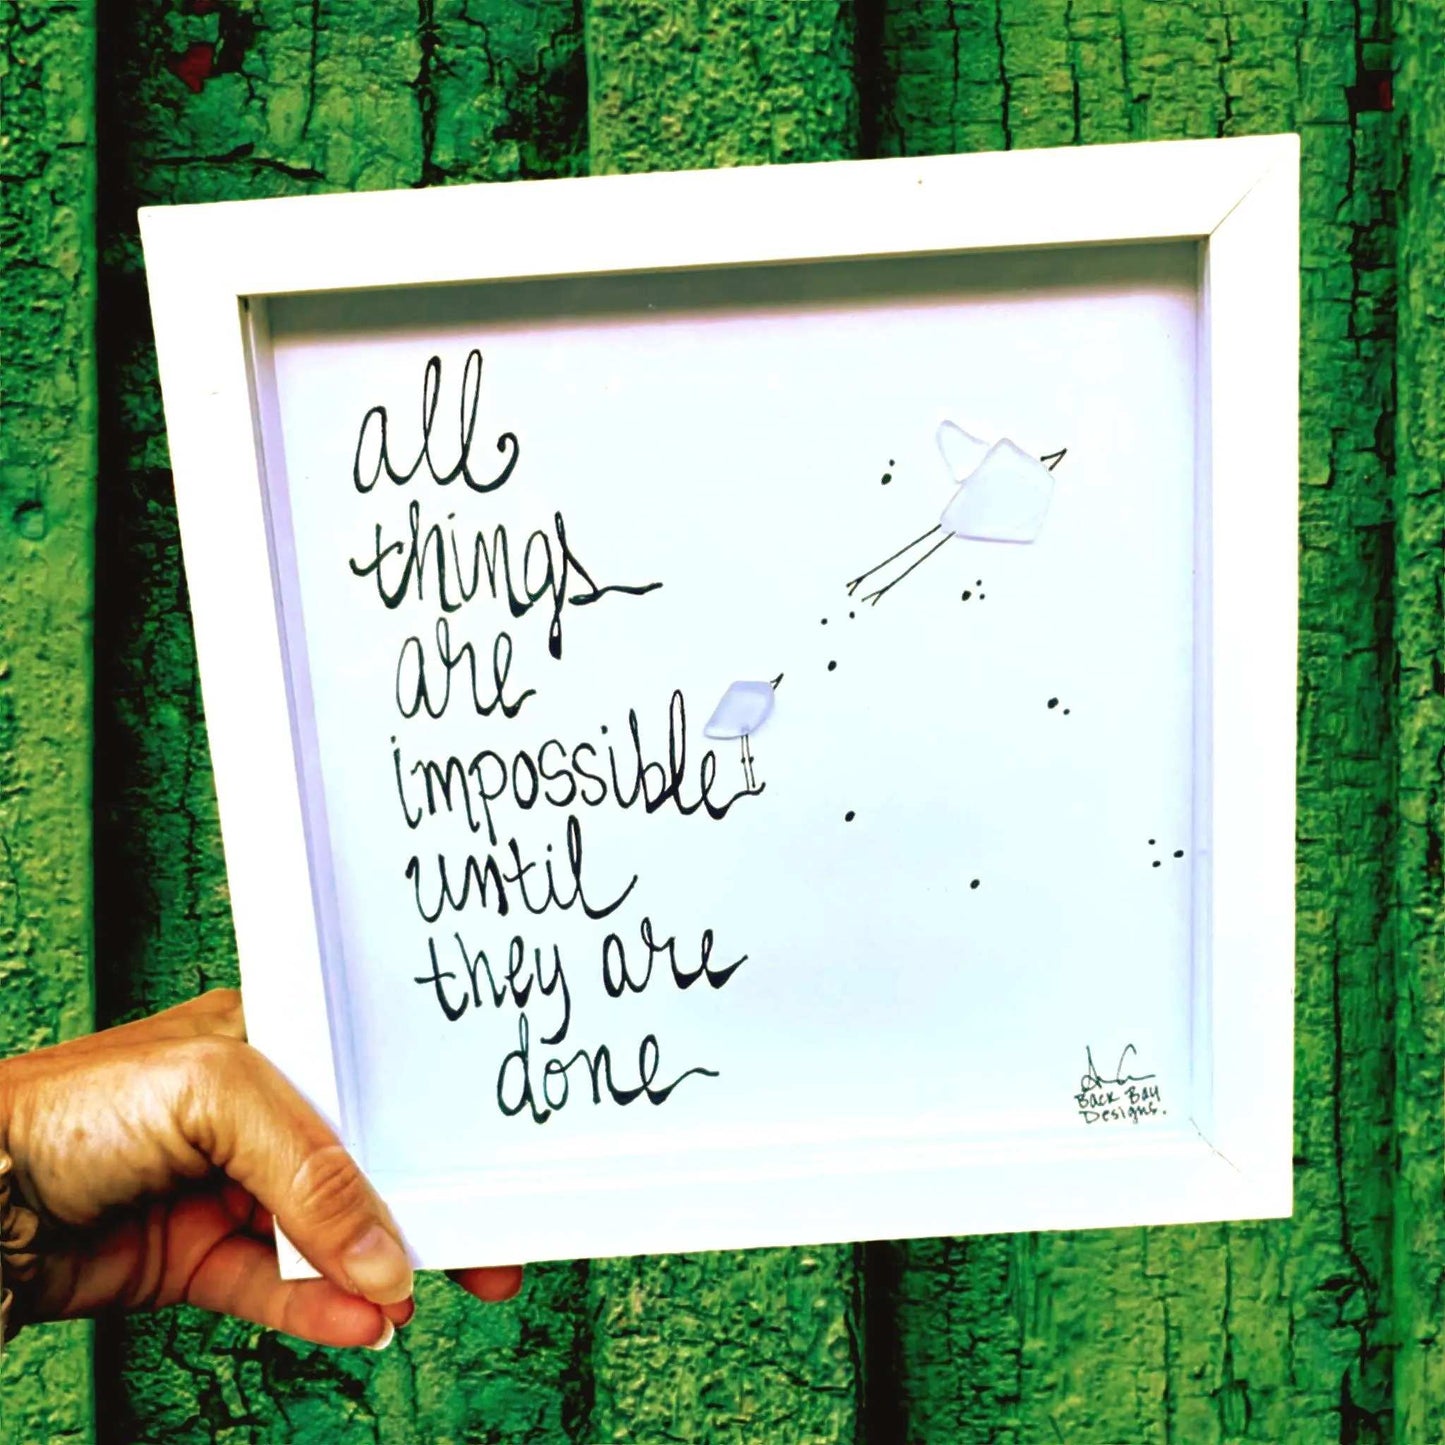 all
things
are
impossible
until
they are
done
Back Bay
Designs.